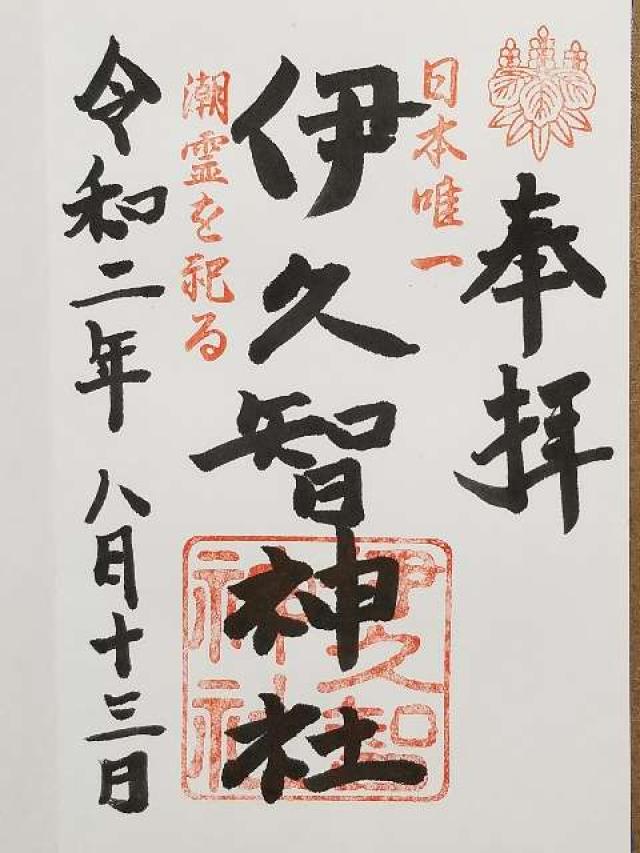 奉拝
日本唯一
伊久智神社
潮霊を祀る
令和二年八月十三日
伊久智
神社